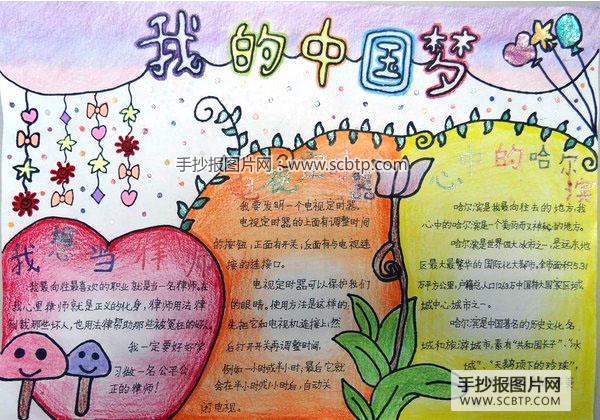 我的中国梦
手抄报图片网:www.scbtp.com
我想当律师
我最向往最喜欢的职业就是当一名律师。在
我心里律师就是正义的化身,律师用法律
制裁那些坏人,也用法律帮助那些被冤枉的好人。
我一定要好好学
习做一名公平公
正的律师!
我要发明一个电视定时器。
电视定时器的上面有调整时间
的按钮,正面有开关,后面有与电视连
接的连接口。
电视定时器可以保护我们
的眼睛。使用方法是这样的:
先把它和电视机连接上,然
后打开开关再调整时间,
例如一小时或半小时,最后它就
会在半小时或小时后,自动关
闭电视。
心中的哈尔滨
哈尔滨是我最向往去的地方,我
心中的哈尔滨是一个美丽而又神秘的地方。
哈尔滨是世界四大冰雪之一,是远东地
区最大最繁华的国际化大都市。全市面积5.31
万平方公里,户籍总人口1263万中国特大国家区域
城中心城市之一。
哈尔滨是中国著名的历史文化名
城和旅游城市,素有“共和国长子”、“冰
城”、“天鹅项下的珍珠”,
手抄报图片网
WWW.SCBTP.COM